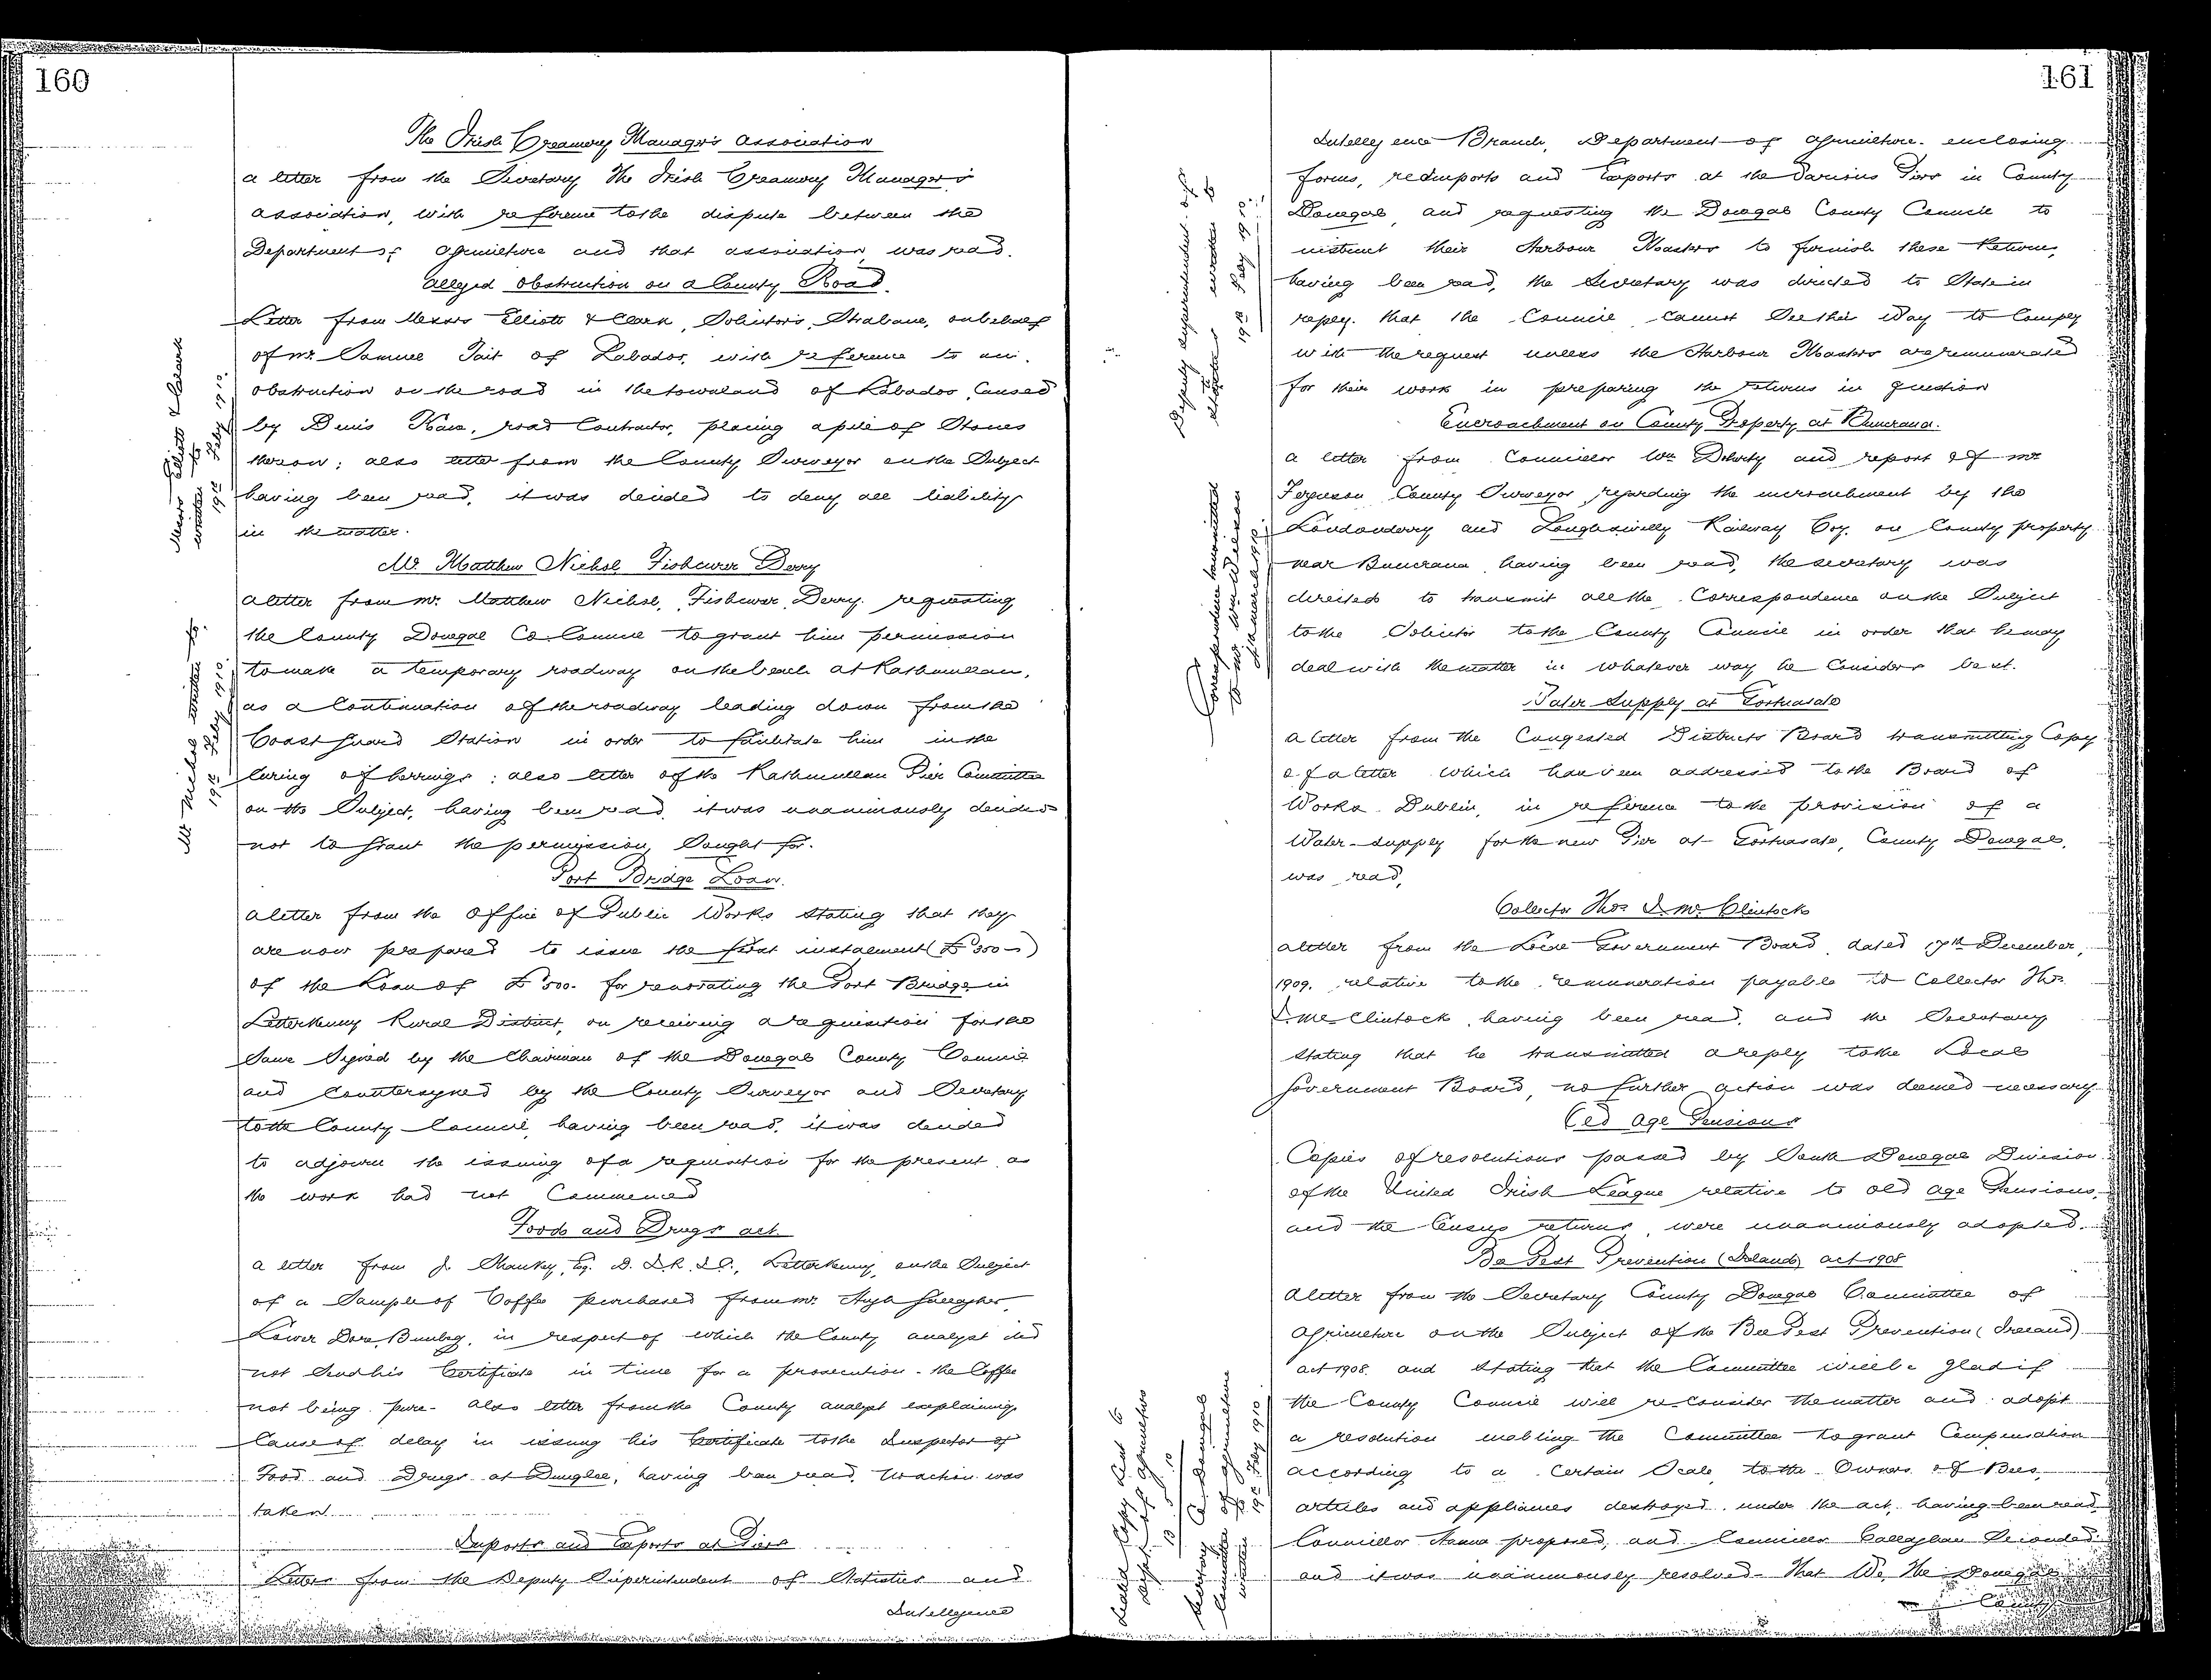 160
The Irish Creamery Manager's Association
a letter from the Secretary The Irish Creamery Manager's
Association, with reference to the dispute between the
Department of Agriculture and that association, was read.
Alleged obstruction on a County Road.
Letter from Messrs Elliott & Clark, Solicitors, Strabane, on behalf
of Mr. Samuel Tait of Labados, with reference to an
obstruction on the road in the townland of Labados, Caused
by Denis Kane, road Contractor, placing a pile of Stones
thereon; also letter from the County Surveyor on the Subject
having been read, it was decided to deny all liability
in the matter.
Messrs Elliott & Clark
written to
19th Feby 1910.
Mr. Matthew Nichol, Fishcurer Derry
a letter from Mr. Matthew Nichol, Fishcurer, Derry. requesting
the County Donegal Co. Council to grant him permission
to make a temporary roadway on the beach at Rathmullan,
as a Continuation of the roadway leading down from the
Coast Guard Station in order to facilitate him in the
Curing of herrings; also letter of the Rathmullan Pier Committee
on the Subject, having been read, it was unanimously decided
not to Grant the permission Sought for.
Mr Nichol written to.
19th Feby 1910
Port Bridge Loan.
a letter from the Office of Public Works stating that they
are now prepared to issue the first instalment (£350-)
of the Loan of £500. for renovating the Port Bridge in
Letterkenny Rural District, on receiving a requisition for the
Same Signed by the Chairman of the Donegal County Council
and Countersigned by the County Surveyor and Secretary
to the County Council, having been read, it was decided
to adjourn the issuing of a requisition for the present as
the work had not Commenced
Foods and Drugs act.
a letter from J. Shankey, Esq. D.I. R.I.C., Letterkenny, on the Subject
of a Sample of Coffee purchased from Mr. Hugh Gallagher,
Lower Dore, Bunbeg, in respect of which the County analyst did
not Send his Certificate in time for a prosecution - the Coffee
not being pure - also letter from the County analyst explaining
Cause of delay in issuing his Certificate to the Inspector of
Food and Drugs at Dunglee, having been read, no action was
taken.
Imports and Exports at Piers
Letter from the Deputy Superintendent of Statistics and
Intelligence
161
Intelligence Branch, Department of Agriculture enclosing
forms, re Imports and Exports at the Various Piers in County
Donegal, and requesting the Donegal County Council to
instruct their Harbour Masters to furnish these Returns,
having been read, the Secretary was directed to State in
reply that the Council Cannot See their Way to Comply
with the request unless the Harbour Masters are remunerated
for their work in preparing the returns in question
Deputy Superintendent of
Statistics written to
19th Feby 1910.
Encroachment on County Property at Buncrana.
a letter from Councillor Wm Doherty and report of Mr
Ferguson County Surveyor, regarding the encroachment by the
Londonderry and Loughswilly Railway Coy. on County property
near Buncrana, having been read, the secretary was
directed to transmit all the Correspondence on the Subject
to the Solicitor to the County Council in order that he may
deal with the matter in whatever way he Considers best.
Correspondence transmitted
to Mr. Wm Wilson
March 1910
Water Supply at Portnasale
a letter from the Congested Districts Board transmitting Copy
of a letter which has been addressed to the Board of
Works Dublin, in reference to the provision of a
Water-supply for the new Pier at Portnasale, County Donegal,
was read,
Collector Thos. I. McClintock
a letter from the Local Government Board dated 17th December,
1909. relative to the remuneration payable to Collector Thos.
I. McClintock, having been read, and the Secretary
stating that he transmitted a reply to the Local
Government Board, no further action was deemed necessary
Old Age Pensions
Copies of resolutions passed by South Donegal Division
of the United Irish League relative to old age Pensions,
and the Census returns, were unanimously adopted.
Bee Pest Prevention (Ireland) act 1908
a letter from the Secretary County Donegal Committee of
Agriculture on the Subject of the Bee Pest Prevention (Ireland)
act 1908. and stating that the Committee will be glad if
the County Council will re-consider the matter and adopt
a resolution enabling the Committee to grant Compensation
according to a Certain Scale, to the Owners of Bees,
articles and appliances destroyed under the act, having been read
Councillor Hanna proposed, and Councillor Callaghan Seconded
and it was unanimously resolved - That We, the Donegal
County
Sealed Copy sent to
Dept. of Agriculture
Secretary Co Donegal
Committee of Agriculture
written to 19th Feby 1910